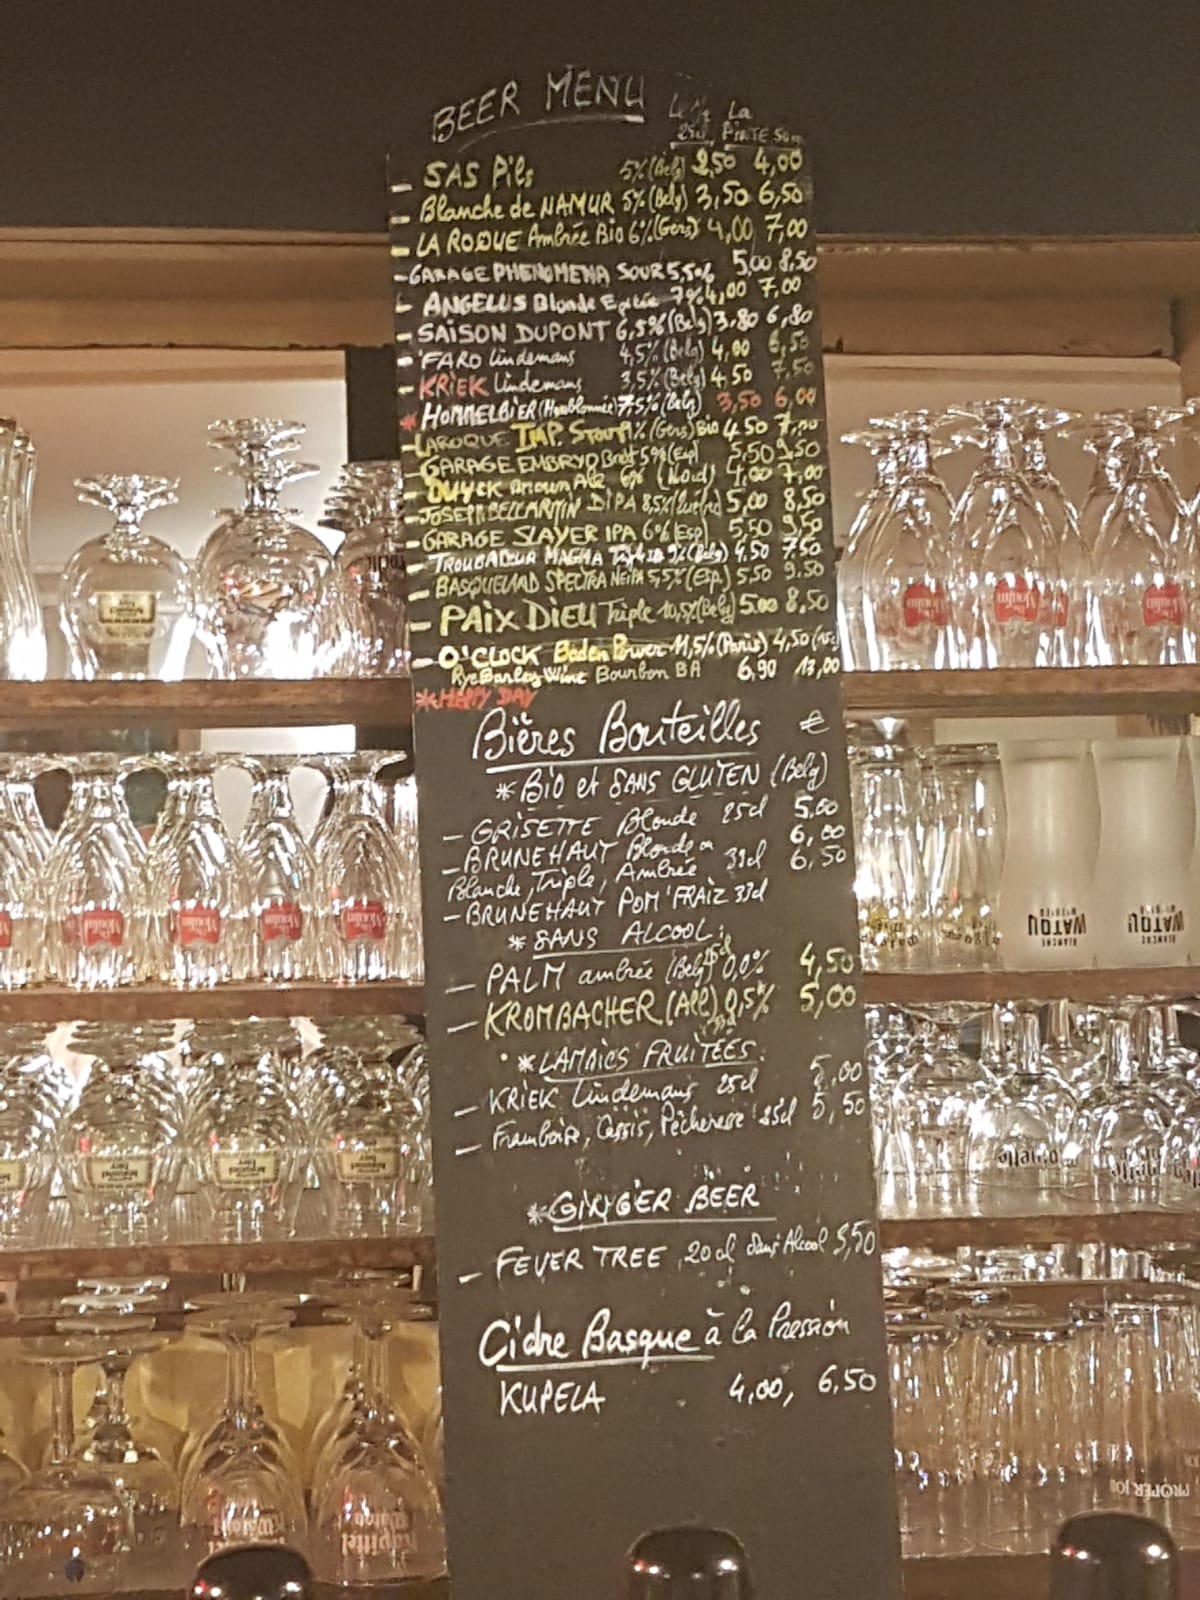 BEER MENU
La
25cl PINTE 50cl
- SAS Pils 5% (Belg) 2,50 4,00
- Blanche de NAMUR 5% (Belg) 3,50 6,50
- LA ROQUE Ambrée Bio 6% (Gers) 4,00 7,00
- GARAGE PHENOMENA SOUR 5,5% 5,00 8,50
- ANGELUS Blonde Epicée 7% 4,00 7,00
- SAISON DUPONT 6,5% (Belg) 3,80 6,80
- FARO Lindemans 4,5% (Belg) 4,00 6,50
- KRIEK Lindemans 3,5% (Belg) 4,50 7,50
* HOMMELBIER (Houblonnée) 7,5% (Belg) 3,50 6,00
- LAROQUE IMP. Stout (Gers) Bio 4,50 7,00
- GARAGE EMBRYO Brett 5% (Esp) 5,50 9,50
- DUYCK Brown Ale 6% (Nord) 4,00 7,00
- JOSEPH DIPA 8,5% 5,00 8,50
- GARAGE SLAYER IPA 6% (Esp) 5,50 9,50
- TROUBADOUR MAGMA Triple 9% (Belg) 4,50 7,50
- BASQUELAND SPECTRA NEIPA 5,5% (Esp.) 5,50 9,50
- PAIX DIEU Triple 10,5% (Belg) 5,00 8,50
- O'CLOCK Baden Power 11,5% (Paris) 4,50
Rye Barley Wine Bourbon BA 6,90 13,00
* HAPPY DAY
Bières Bouteilles €
* BIO et SANS GLUTEN (Belg)
- GRISETTE Blonde 25cl 5,00
- BRUNEHAUT Blonde ou 6,00
Blanche, Triple, Ambrée 33cl 6,50
- BRUNEHAUT POM'FRAIZ 33cl
* SANS ALCOOL:
- PALM ambrée (Belg) 0,0% 4,50
- KROMBACHER (All) 0,5% 5,00
* LAMBICS FRUITEES:
- KRIEK Lindemans 25cl 5,00
- Framboise, Cassis, Pêcheresse 25cl 5,50
* GINGER BEER
- FEVER TREE 20cl Sans Alcool 3,50
Cidre Basque à la Pression
KUPELA 4,00, 6,50
BLANCHE
WATOU
BLANCHE
WATOU
PROPER JOB
Kapittel
Watou